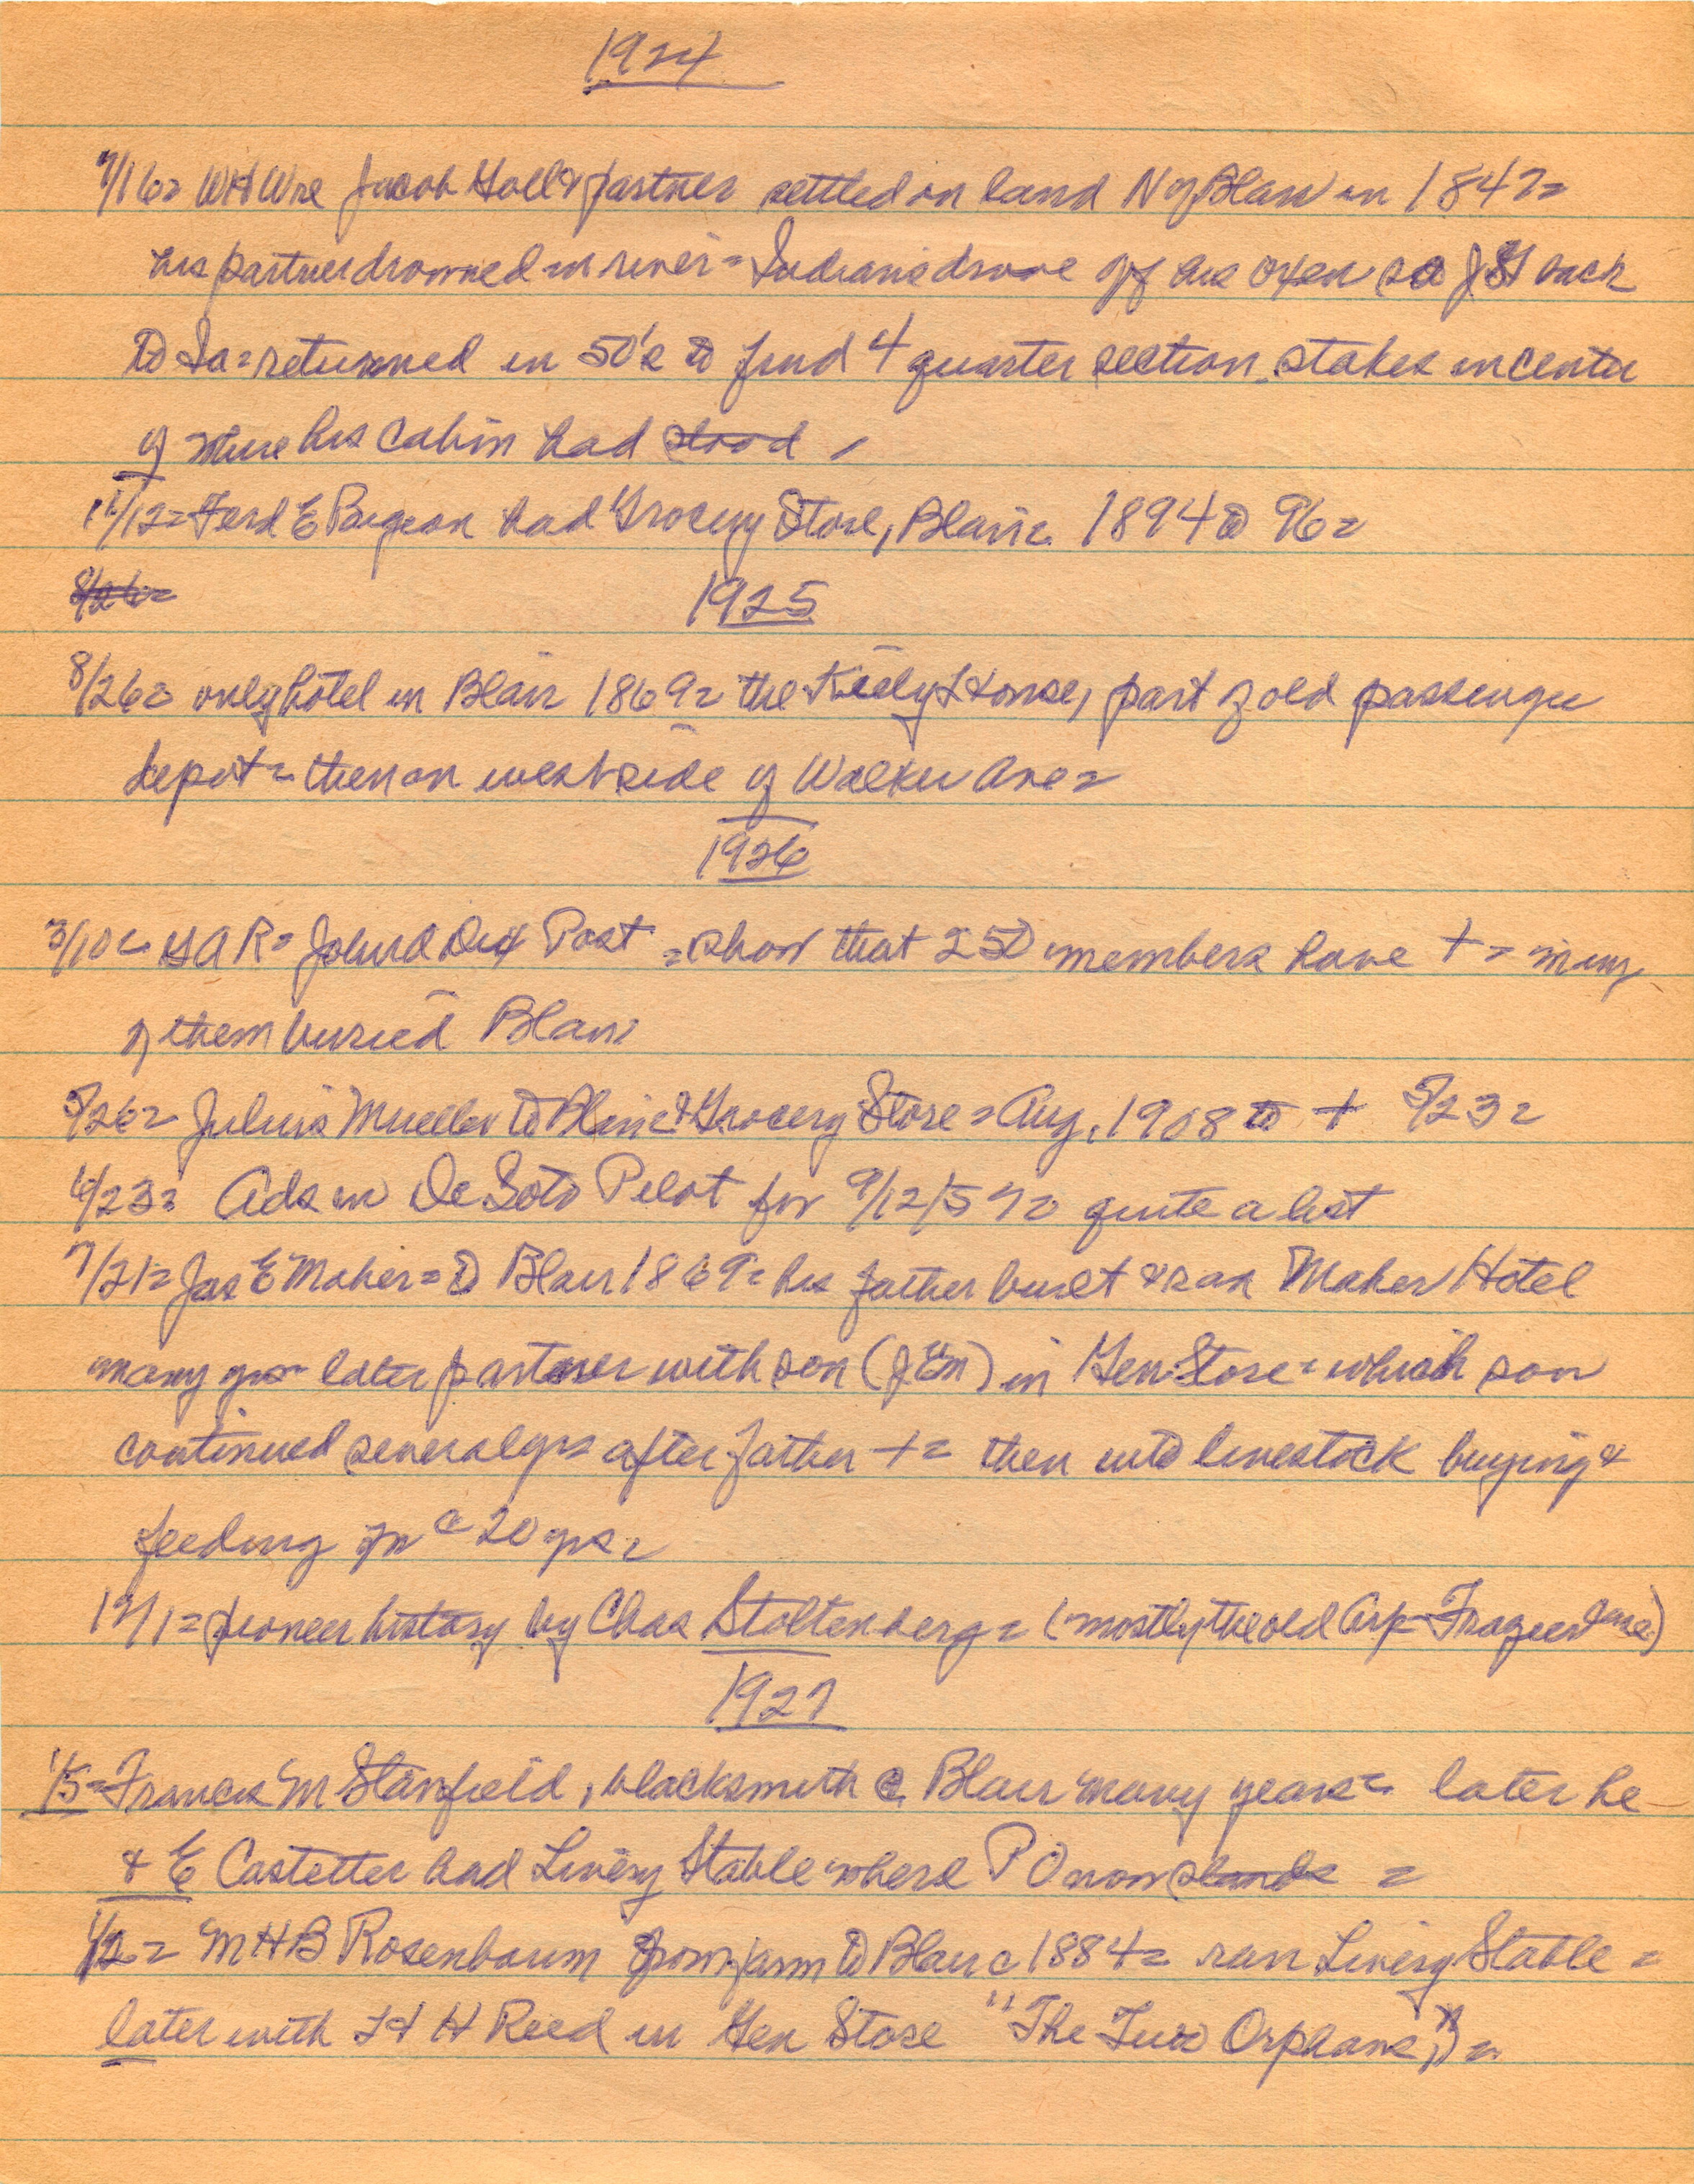 1924
7/16= WHWoe Jacob Goll & partner settled on land N of Blair in 1847=
his partner drowned in river = Indians drove off his oxen so JG back
to Ia = returned in 50's to find 4 quarter section stakes in center
of where his cabin had stood
11/12= Ferd E Bujeon had Grocery Store, Blair = 1894 to 96=
8/26=
1925
8/26= only hotel in Blair 1869= the Keely House, part of old passenger
depot = then on west side of Walker Ave =
1926
3/10= GAR = John A Dix Post = show that 250 members have + = many
of them buried Blair
5/26= Julius Mueller to Blair & Grocery Store = Aug. 1908 to + 5/23=
6/23= Ads in De Soto Pilot for 9/12/57= quite a list
7/21= Jas E Maher = to Blair 1869= his father built & ran Maher Hotel
many yrs later partner with son (JEM) in Gen Store = which son
continued several yrs after father + = then into livestock buying &
feeding for c 20 yrs =
12/1= pioneer history by Chas Stoltenberg = (mostly the old Arp - Frazier case)
1927
1/5= Francis M Stanfield, blacksmith @ Blair many years = later he
& E Castetter had Livery Stable where P O now stands =
1/12= MHB Rosenbaum from farm to Blair c 1884= ran Livery Stable =
later with H H Reed in Gen Store "The Two Orphans," =